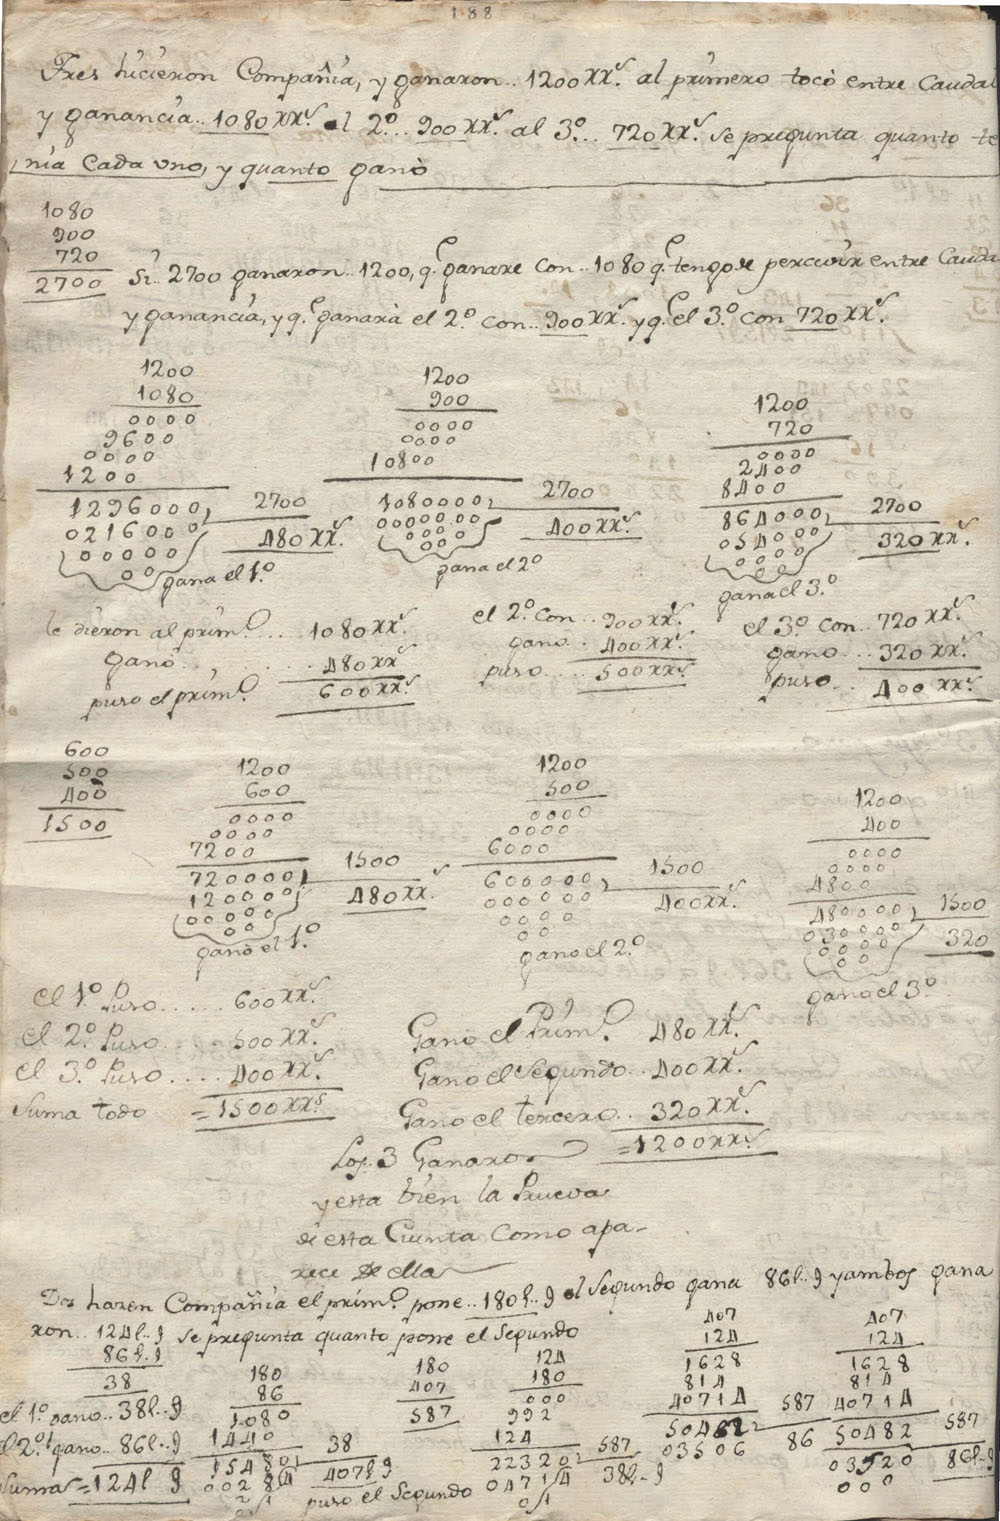 188
Tres hicieron Compañia, y ganaron.. 1200 xx.s al primero tocò entre Caudal
y ganancia.. 1080 xx.s al 2.o... 900 xx.s al 3.o... 720 xx.s se pregunta quanto te
nia Cada vno, y quanto ganò
1080
900
720
2700 Si.. 2700 ganaron.. 1200, q.e ganare con.. 1080 q.e tengo de percivir entre Cauda
y ganancia, y q.e ganarà el 2.o con.. 900 xx.s y q.e el 3.o con 720 xx.s
1200 1200 1200
1080 900 720
0000 0000 0000
9600 0000 2400
0000 10800 8400
1200
1296000 2700 1080000 2700 864000 2700
0216000 480 xx.s 0000000 400 xx.s 054000 320 xx.s
00000
00
gana el 1.o gana el 2o gana el 3.o
le dieron al prim.o ... 1080 xx.s el 2.o Con.. 900 xx.s el 3.o Con.. 720 xx.s
ganò ........ 480 xx.s gano... 400 xx.s gano... 320 xx.s
puso el prim.o 600 xx.s puso.... 500 xx.s puso.. 400 xx.s
600
500
400
1500
1200 1200 1200
600 500 400
0000 0000 0000
0000 0000 0000
7200 6000 4800
720000 1500 600000 1500 480000 1500
120000 480 xx.s 000000 400 xx.s 030000 320
00000 0000
00 00 00
ganò el 1.o gano el 2.o gano el 3.o
el 1.o Puso..... 600 xx.s
el 2.o Puso... 500 xx.s
el 3.o Puso.... 400 xx.s
Suma todo = 1500 xx.s
Ganò el Prim.o 480 xx.s
Gano el Segundo.. 400 xx.s
Gano el tercero.. 320 xx.s
Los 3 Ganaron = 1200 xx.s
y esta bien la Prueva
de esta Cuenta Como apa-
rece de ella
Dos hazen Compañia el prim.o pone.. 180 l.. 9 el Segundo gana 86 l.. 9 y ambos gana
ron.. 124 l.. 9 se pregunta quanto pone el Segundo
86 l.. 9
38
el 1.o gano.. 38 l.. 9
el 2.o gano.. 86 l.. 9
Suma = 124 l 9
180
86
1080
1440
15480 38
00284 407 l 9
puso el Segundo
180
407
587
124
180
000
992
124
22320 587
04714 38 l.. 9
407
124
1628
814
40714 587
50482 86
03506
407
124
1628
814
40714
50482 587
03520 86 l.. 9
000